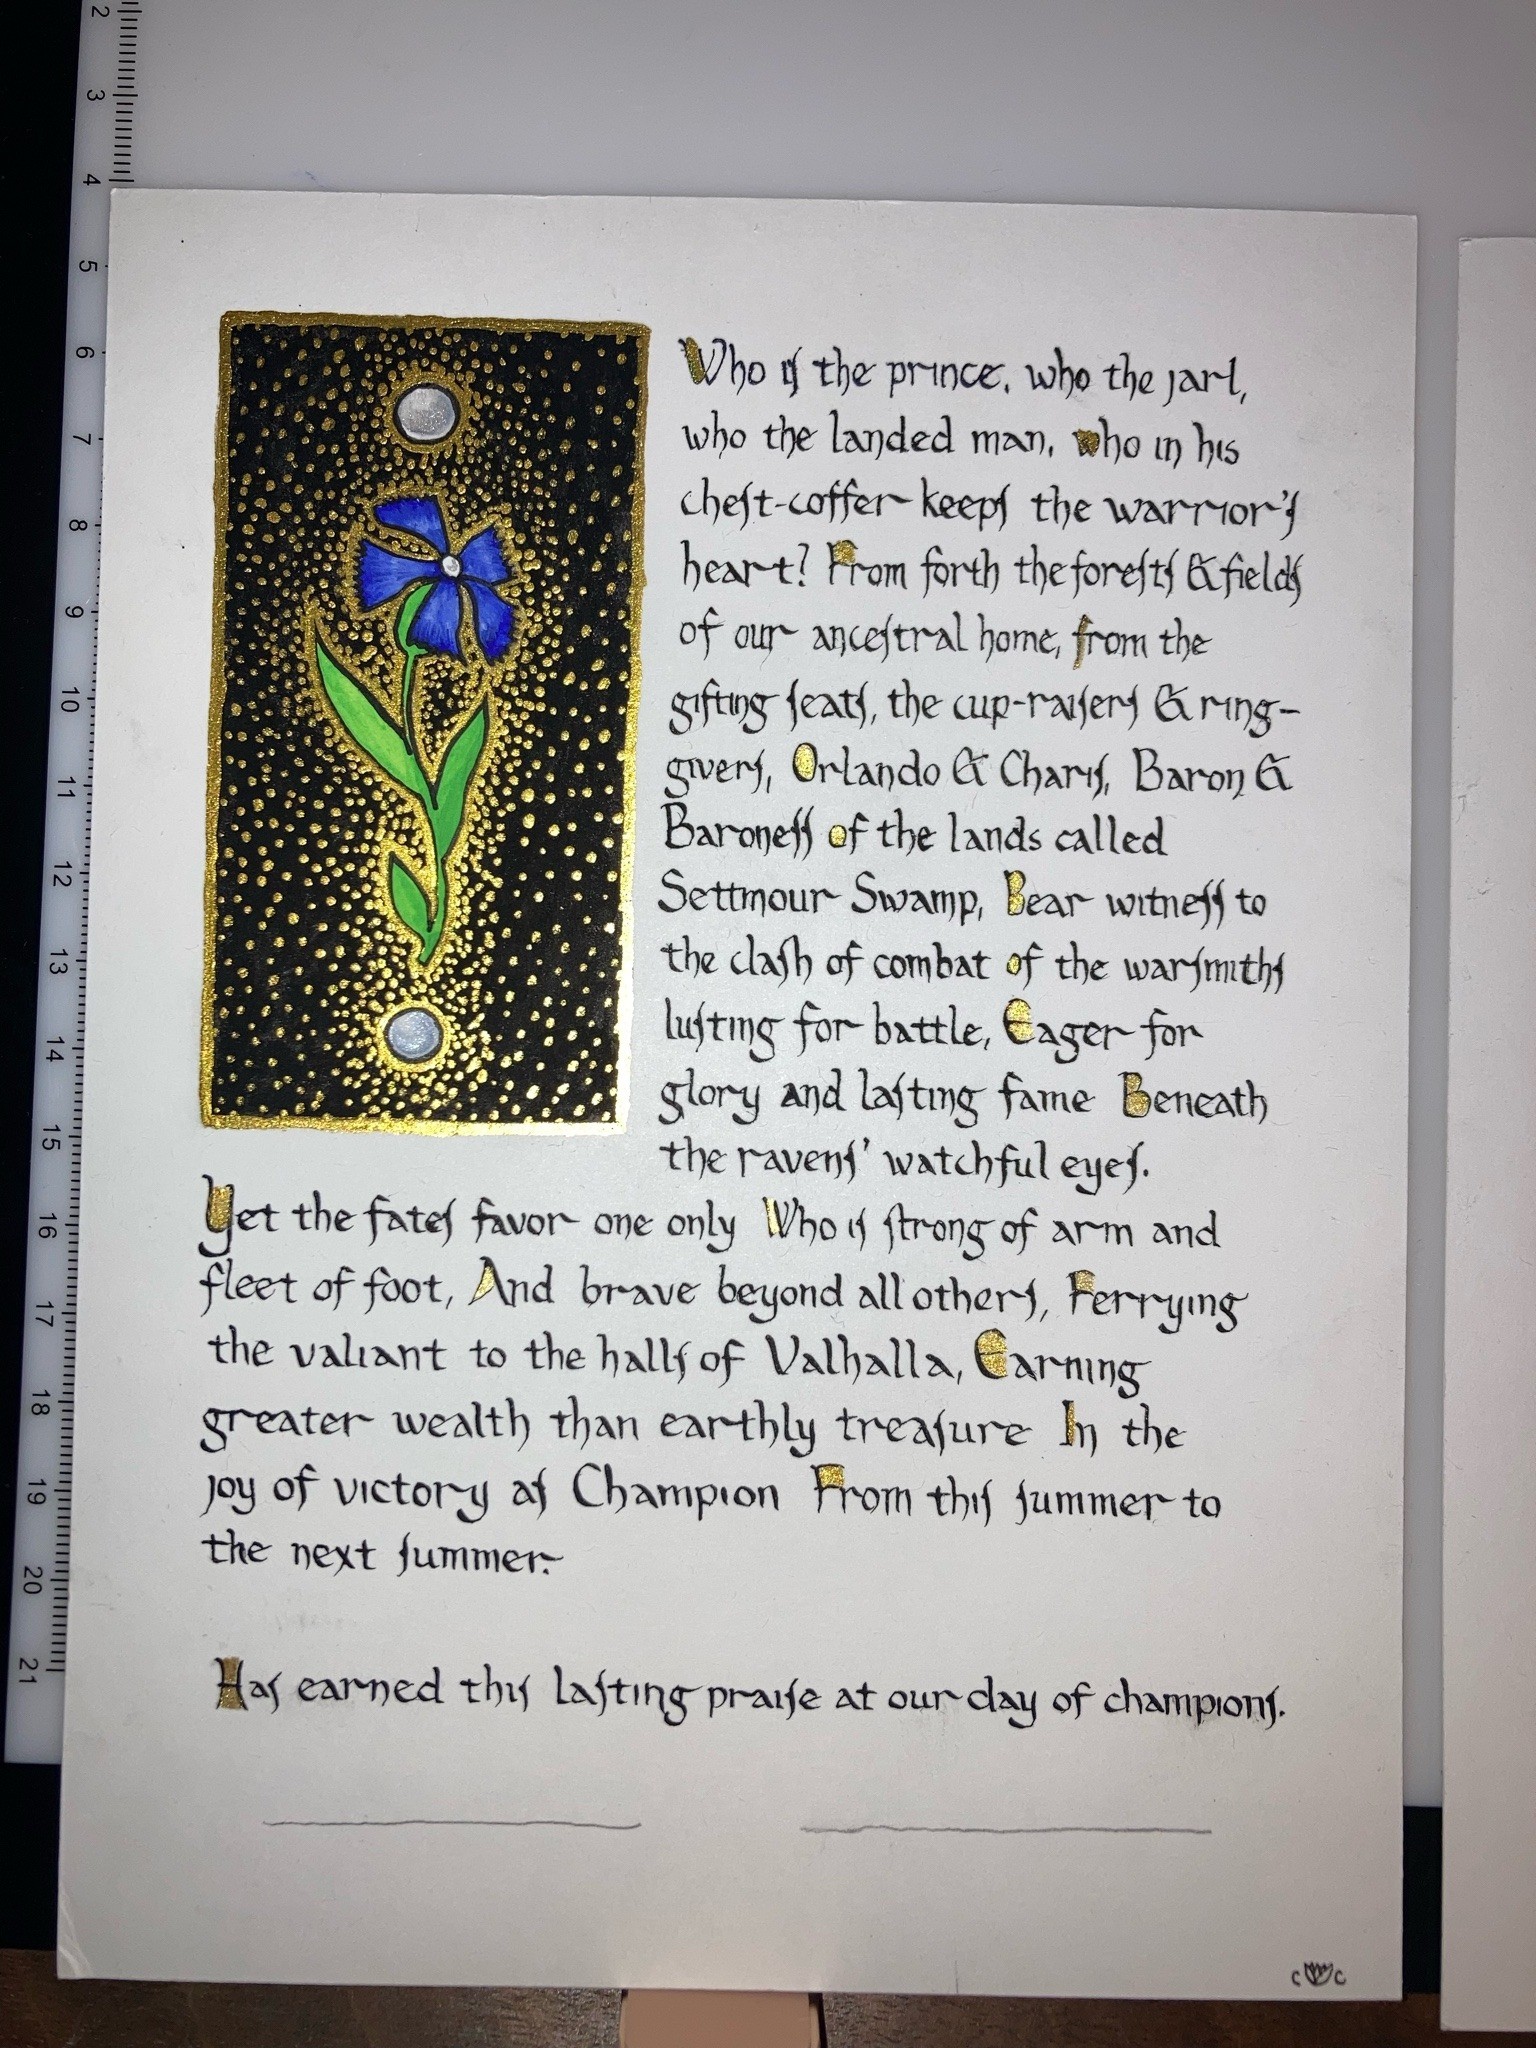 2
3
4
5
6
7
8
9
10
11
12
13
14
15
16
17
18
19
20
21
Who is the prince, who the jarl,
who the landed man, who in his
cheſt-coffer keeps the warrior's
heart? From forth the foreſts & fields
of our anceſtral home, from the
gifting ſeats, the cup-raiſers & ring-
givers, Orlando & Charis, Baron &
Baroneſs of the lands called
Settmour Swamp, Bear witneſs to
the claſh of combat of the warſmiths
luſting for battle, Eager for
glory and laſting fame Beneath
the ravens' watchful eyes.
Yet the fates favor one only Who is ſtrong of arm and
fleet of foot, And brave beyond all others, Ferrying
the valiant to the halls of Valhalla, Earning
greater wealth than earthly treaſure In the
joy of victory as Champion From this ſummer to
the next ſummer.
Has earned this laſting praiſe at our day of champions.
c c